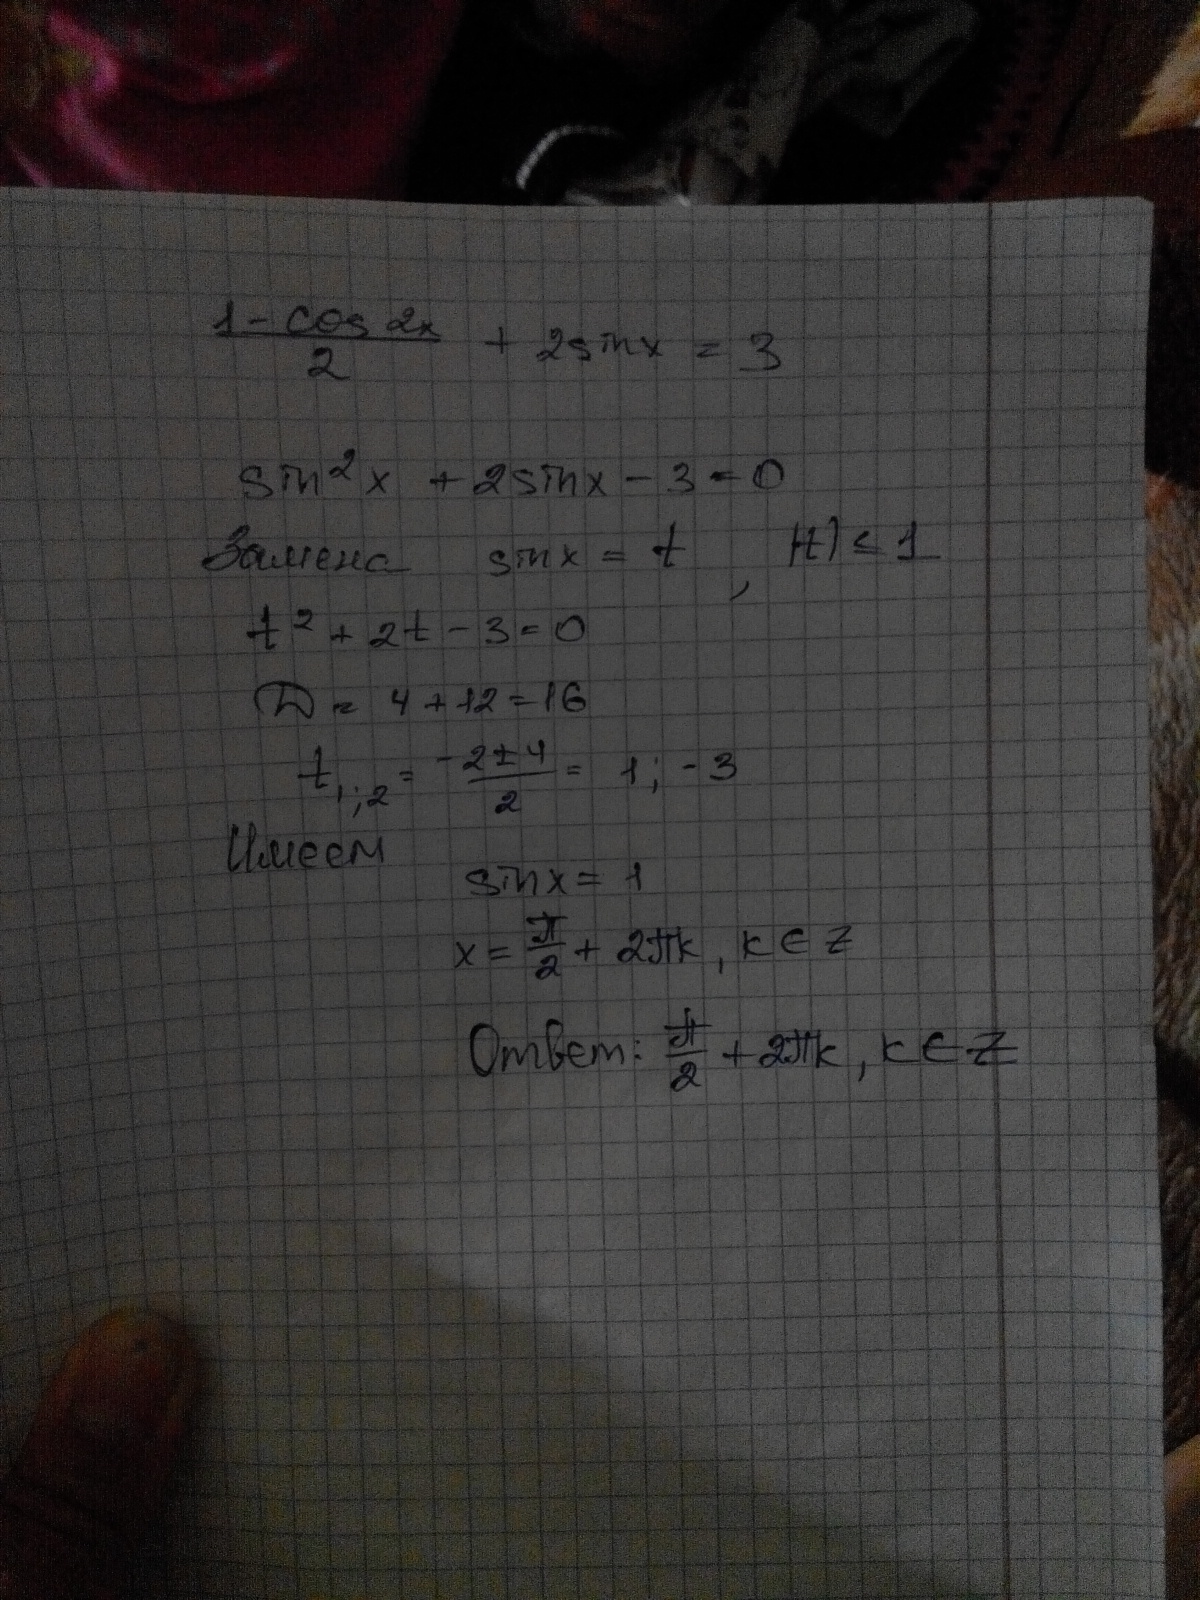 1 - cos 2x / 2 + 2sinx = 3
sin²x + 2sinx - 3 = 0
Замена sinx = t, |t| ≤ 1
t² + 2t - 3 = 0
D = 4 + 12 = 16
t₁;₂ = -2 ± 4 / 2 = 1; -3
Имеем
sinx = 1
x = π/2 + 2πk, k ∈ Z
Ответ: π/2 + 2πk, k ∈ Z